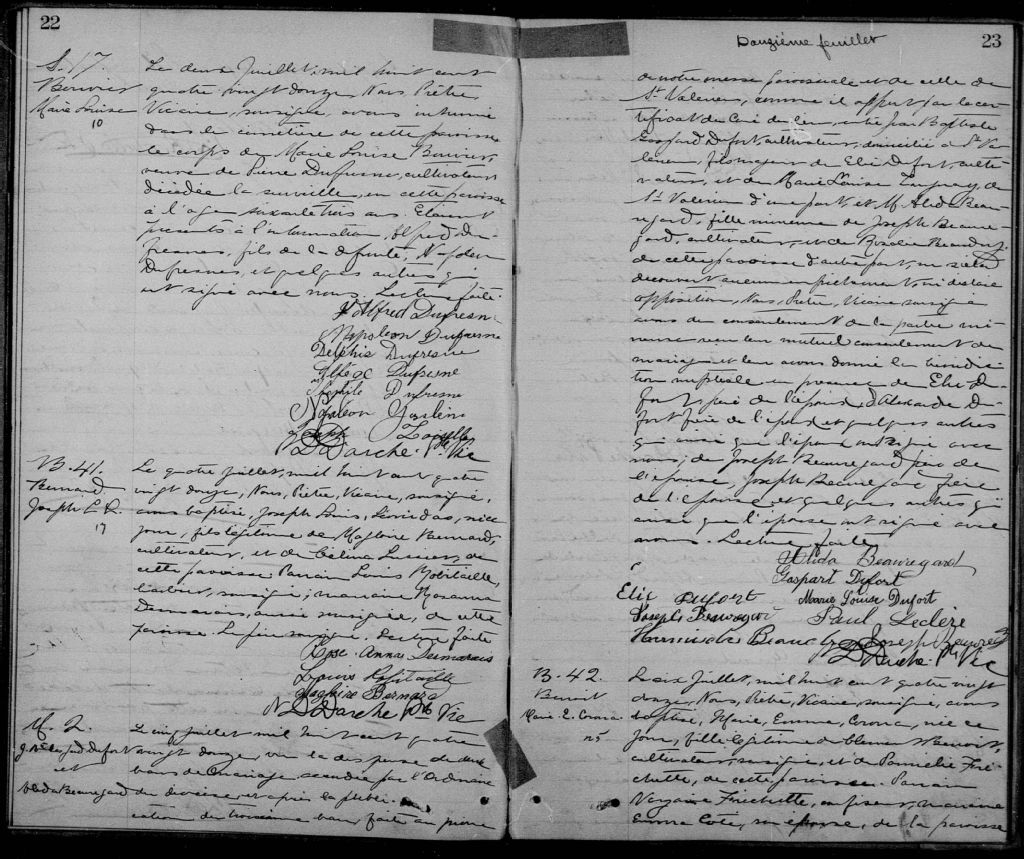 22
S. 17
Bouvier
Marie Louise
10
Le deux Juillet, mil huit cent
quatre vingt douze, Nous Prêtre
Vicaire, soussigné, avons inhumé
dans le cimetière de cette paroisse
le corps de Marie Louise Bouvier,
veuve de Pierre Dufresne, cultivateur,
décédée la surveille, en cette paroisse
à l'age soixante trois ans. Etaient
présents à l'inhumation, Alfred Du-
fresnes, fils de la defunte, Napoleon
Dufresnes, et quelques autres qui
ont signé avec nous. Lecture faite.
Alfred Dufresne
Napoleon Dufresne
Delphis Dufresne
Dufresne
Théophile Dufresne
Napoléon
Joseph
D Darche Ptre Vic
B. 41.
Bernard
Joseph L. L.
17
Le quatre juillet, mil huit cent quatre
vingt douze, Nous, Prêtre, Vicaire, soussigné,
avons baptisé, Joseph Louis, Léonidas, né ce
jour, fils légitime de Magloire Bernard,
cultivateur, et de Célina Lussier, de
cette paroisse. Parrain Louis Robitaille,
soussigné; marraine Rosanna
Desmarais, aussi soussignée, de cette
paroisse. Le père soussigné. Lecture faite
Rose Anna Desmarais
Louis Robitaille
Magloire Bernard
N D Darche Ptr Vic
M. 2.
J. Bte Gasd Dufort
et
Alida Beauregard
Le cinq juillet mil huit cent quatre
vingt douze, vu la dispense de deux
bans de mariage, accordée par l'Ordinaire
du diocèse, et après la publi-
cation du troisième ban, faite au prône
Douzième feuillet
23
de notre messe paroissiale et de celle de
St Valérien, comme il appert par le cer-
tificat du Curé du lieu, entre Jean Baptiste
Gaspard Dufort, cultivateur, domicilié à St Va-
lérien, fils majeur de Elie Dufort, culti-
vateur, et de Marie Louise de
St Valérien d'une part, et M. Alida Beau-
regard, fille mineure de Joseph Beaure-
gard, cultivateur, et de Rosalie
de cette paroisse d'autre part, ne s'étant
découvert aucun empêchement ni
opposition, Nous, Prêtre, Vicaire soussigné
avons du consentement de la partie mi-
neure reçu leur mutuel consentement de
mariage et leur avons donné la bénédic-
tion nuptiale en présence de Elie Du-
fort, père de l'époux, d'Alexandre Du-
fort frère de l'époux et quelques autres
qui ainsi que l'époux ont signé avec
nous, de Joseph Beauregard père de
l'épouse, Joseph Beauregard frère
de l'épouse, et quelques autres qui
ainsi que l'épouse ont signé avec
nous. Lecture faite
Alida Beauregard
Gaspart Dufort
Elie Dufort Marie Louise Dufort
Joseph Beauregard Paul Leclerc
Joseph Beauregard
D Darche Ptr Vic
B. 42.
Benoit
Marie E. Corona
25
Le six Juillet, mil huit cent quatre vingt
douze, Nous, Prêtre, Vicaire, soussigné, avons
baptisé, Marie, Emma, Corona, née ce
jour, fille légitime de Clément Benoit,
cultivateur, soussigné, et de Pamélie Fré-
chette, de cette paroisse. Parrain
Nazaire Fréchette, marraine
Emma Coté, son épouse, de la paroisse